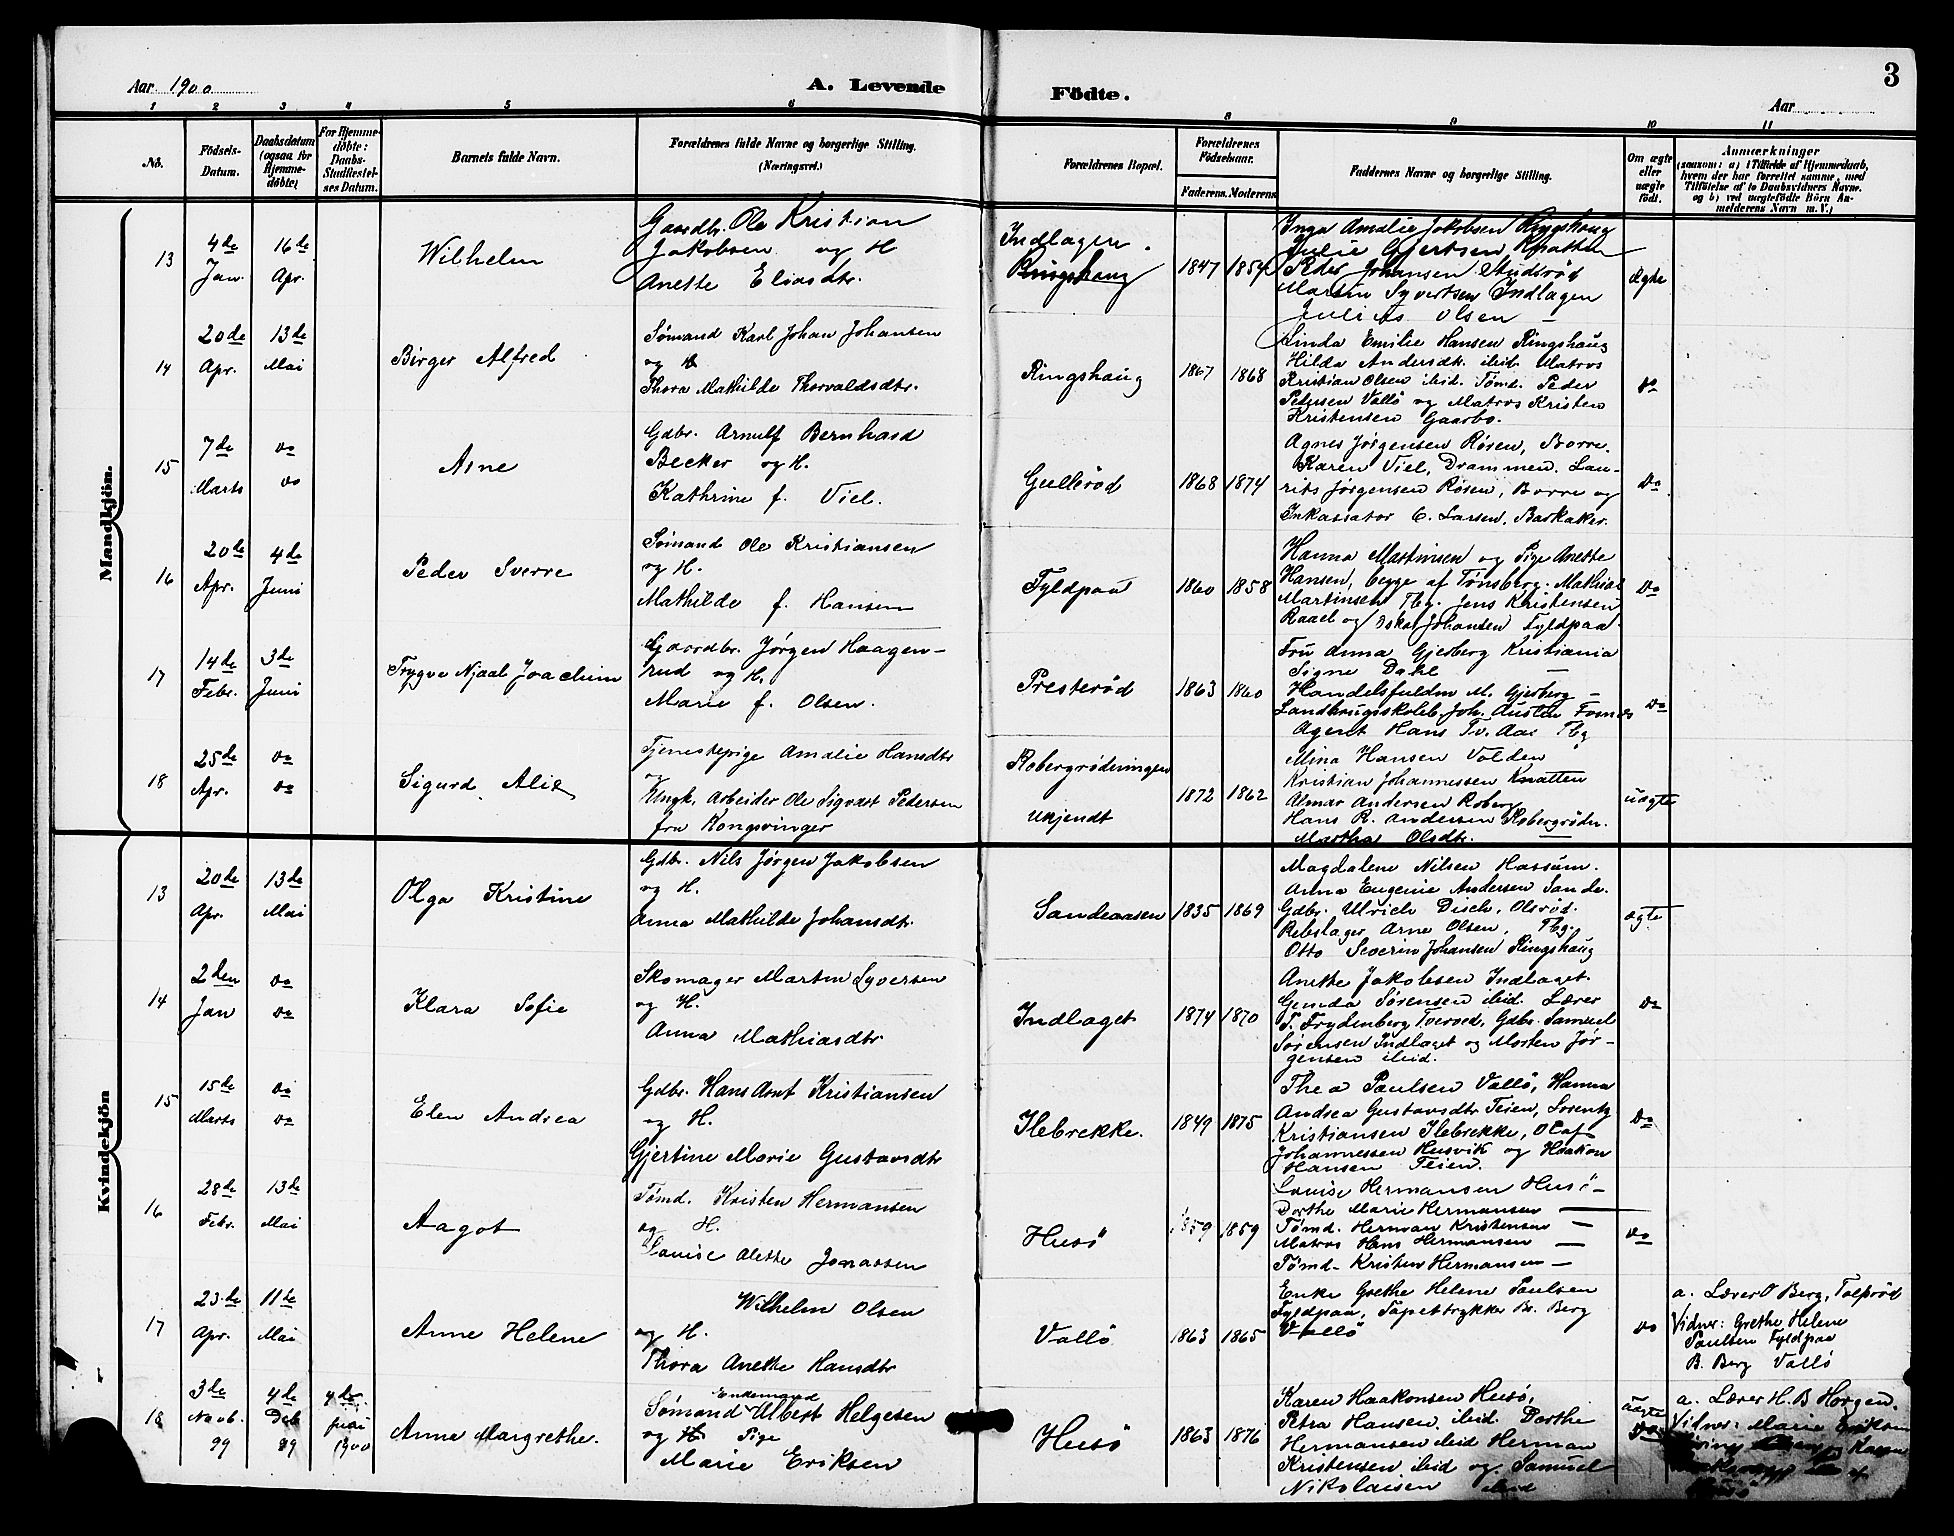 3
Aar 1900
A. Levende Födte.
Aar
1 2 3 4 5 6 8 9 10 11
No.
Födsels-Datum.
Daabsdatum (ogsaa for Hjemmedöbte)
For Hjemmedöbte: Daabs-Stadfæstelses Datum.
Barnets fulde Navn.
Forældrenes fulde Navne og borgerlige Stilling.
(Næringsvei.)
Forældrenes Bopæl.
Forældrenes Födselsaar.
Faderens. Moderens.
Faddernes Navne og borgerlige Stilling.
Om ægte eller uægte födt.
Anmærkninger
(saasom: a) i Tilfælde af Hjemmedaab, hvem der har forrettet samme, med Tilföielse af to Daabsvidners Navne. og b) ved uægtefödte Börn Anmelderens Navn m. V.)
Mandkjön.
13
4de Jan.
16de Apr.
Wilhelm
Gaardbr. Ole Kristian
Jakobsen og H
Anette Eliasdtr.
Indlagen.
Ringshaug
1847 1854
Inga Amalie Jakobsen Ringshaug
Julie Gjertsen Knatten
Peder Johansen Studsrød
Martin Syvertsen Indlagen
Julius Olsen —
Ægte
14
20de Apr.
13de Mai
Birger Alfred
Sømand Karl Johan Johansen
og H
Thora Mathilde Thorvaldsdtr.
Ringshaug
1867 1868
Linda Emilie Hansen Ringshaug
Hilda Andersdtr. ibid. Matros
Kristian Olsen ibid. Tømd. Peder
Petersen Vallö og Matros Kristen
Kristensen Gaarbo.
do
15
7de Marts
do do
Arne
Gdbr. Arnulf Bernhard
Becker og H.
Kathrine f. Viel.
Gullerød
1868 1874
Agnes Jørgensen Røsen, Borre.
Karen Viel, Drammen. Lau-
rits Jørgensen Røsen, Borre og
Inkassator C. Larsen, Barkaker.
do
16
20de Apr.
4de Juni
Peder Sverre
Sømand Ole Kristiansen
og H.
Mathilde f. Hansen
Fyldpaa
1860 1858
Hanna Martinsen og Pige Anette
Hansen, begge af Tønsberg. Mathias
Martinsen Tbg. Jens Kristensen
Raael og Oskar Johansen Fyldpaa.
do
17
14de Febr.
3de Juni
Trygve Njaal Joachim
Gaardbr. Jørgen Haagen-
rud og H.
Marie f. Olsen.
Presterød
1863 1860
Fru Anna Gjerberg Kristiania
Signe Dahl —
Handelsfuldm M. Gjerberg —
Landbrugsskoleb. Joh. Austen
Agent Hans Tv. Aas Tbg
do
18
25de Apr.
do do
Sigurd
Tjenestepige Amalie Hansdtr
og
Ungk. Arbeider Ole Sigvart Pedersen
fra Kongsvinger
Robergrødningen
ukjendt
1872 1862
Mina Hansen Volden
Kristian Johannessen Knatten
Almar Andersen Roberg
Hans R. Andersen Robergrødn.
Martha Olsdtr. —
uægte
Kvindekjön
13
20de Apr.
13de Mai
Olga Kristine
Gdbr. Nils Jørgen Jakobsen
og H.
Anna Mathilde Johansdtr.
Sandeaasen
1835 1869
Magdalene Nilsen Hassum.
Anna Eugenie Andersen Sande.
Gdbr. Ulrich Disch, Olsrød.
Rebslager Arne Olsen, Tbg.
Otto Severin Johansen Ringshaug
ægte
14
2den Jan
do do
Klara Sofie
Skomager Martin Syversen
og H.
Anna Mathiasdtr
Indlaget
1874 1870
Anette Jakobsen Indlaget.
Gunda Sørensen ibid. Lærer
P. Frydenberg Tverved, Gdbr. Samuel
Sørensen Indlaget og Morten Jør-
gensen ibid.
do
15
15de Marts
do do
Elen Andrea
Gdbr. Hans Arnt Kristiansen
og H.
Gjertine Marie Gustavsdtr
Ilebrekke.
1849 1875
Thea Paulsen Vallö, Hanna
Andrea Gustavsdtr Teien, Lorentz
Kristiansen Ilebrekke, Olaf
Johannessen Husvik og Haakon
Hansen Teien.
do
16
28de Febr.
13de Mai
Aagot
Tømd. Kristen Hermansen
og H.
Louise Alette Jonassen
Husö
1859 1859
Louise Hermansen Husö —
Dorthe Marie Hermansen —
Tømd. Herman Kristensen —
Matros Hans Hermansen —
Tømd. Kristen Hermansen —
do
17
23de Apr.
11te Mai
Anne Helene
Wilhelm Olsen
og H.
Thora Anette Hansdtr
Vallö
1863 1865
Enke Grethe Helene Paulsen
Fyldpaa, Tapettrykker Br. Berg
Vallö
do
a. Lærer O Berg, Tolprød
Vidner: Grethe Helene
Paulsen Fyldpaa
B. Berg Vallö
18
3de Novb. 99
4de Deb 99
4de Juni 1900
Anne Margrethe.
Enkemand
Sømand Albert Helgesen
og H Pige
Marie Eriksen
Husö
1863 1876
Karen Haakonsen Husö,
Petra Hansen, ibid. Dorthe
Hermansen ibid Herman
Kristensen ibid og Samuel
Nikolaisen ibid
Uægte
do
a. Lærer H. B Horgen.
Vidner: Marie Eriksen